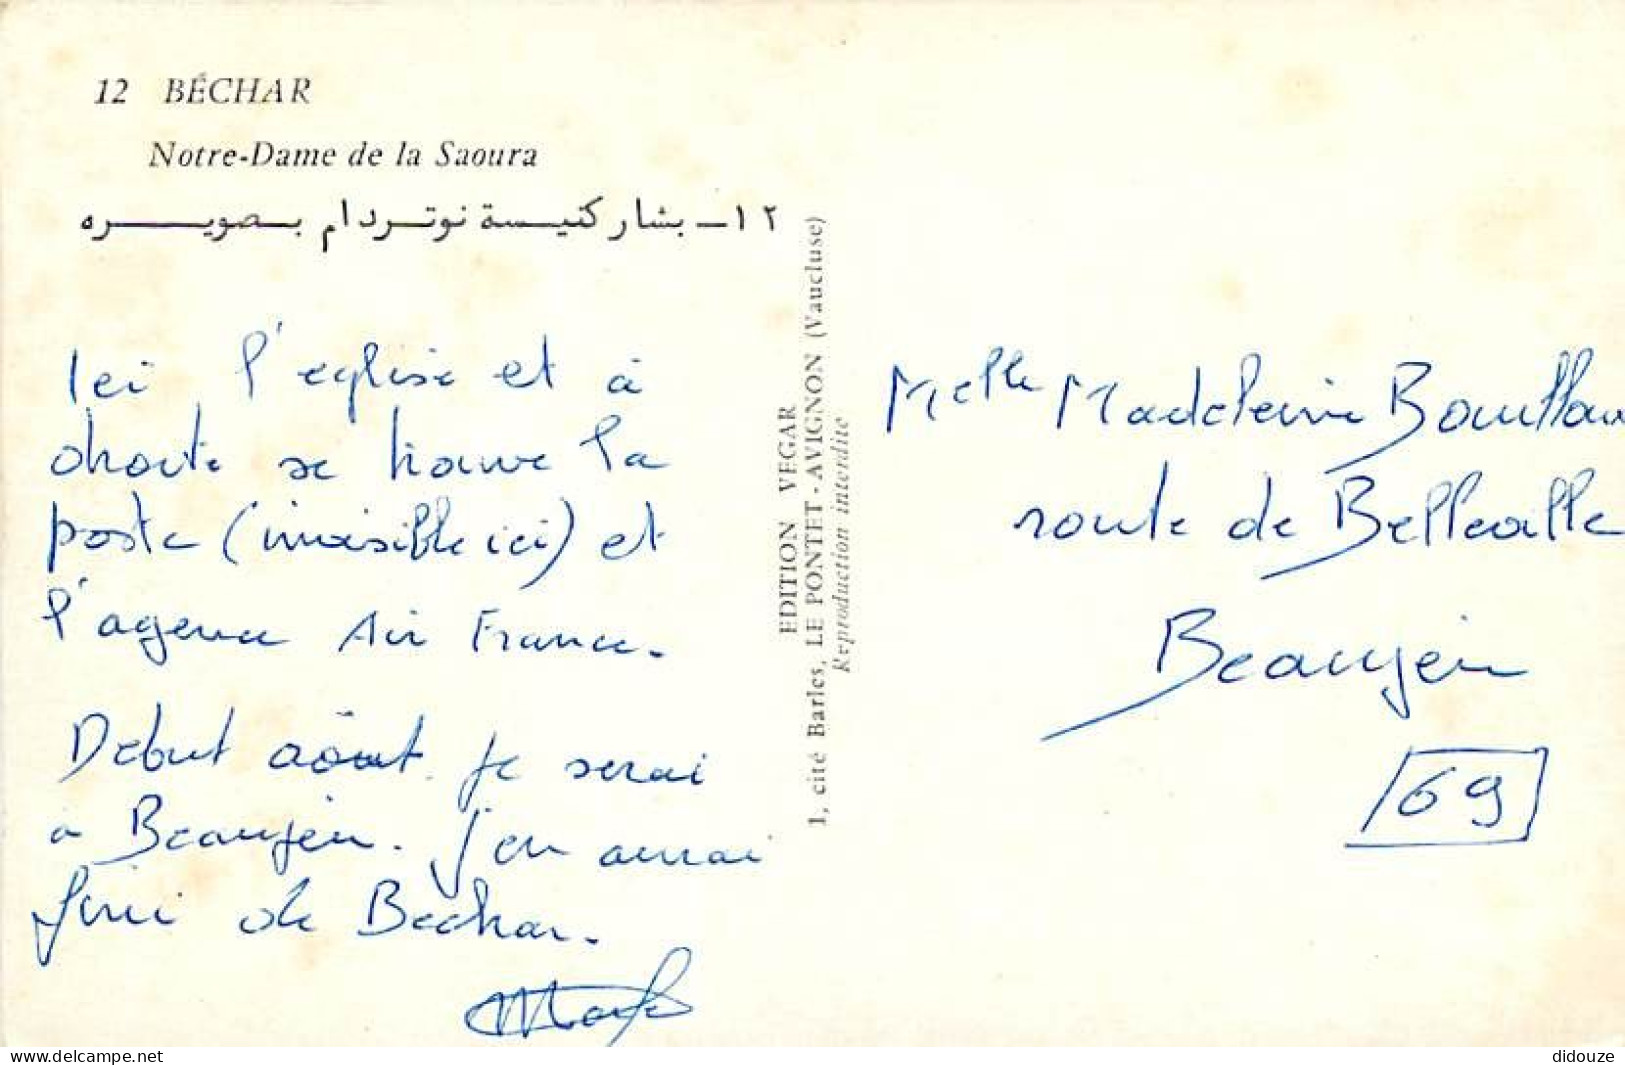 12 BÉCHAR
Notre-Dame de la Saoura
١٢ – بشار كنيسة نوتردام بصويره
Ici l'eglise et à
droite se trouve la
poste (invisible ici) et
l'agence Air France.
Debut août je serai
a Beaujeu. J'en aurai
fini de Bechar.
EDITION VEGAR
1, cité Barles, LE PONTET - AVIGNON (Vaucluse)
Reproduction interdite
Melle Madeleine
route de Belleville
Beaujeu
69
delcampe.net
didouze